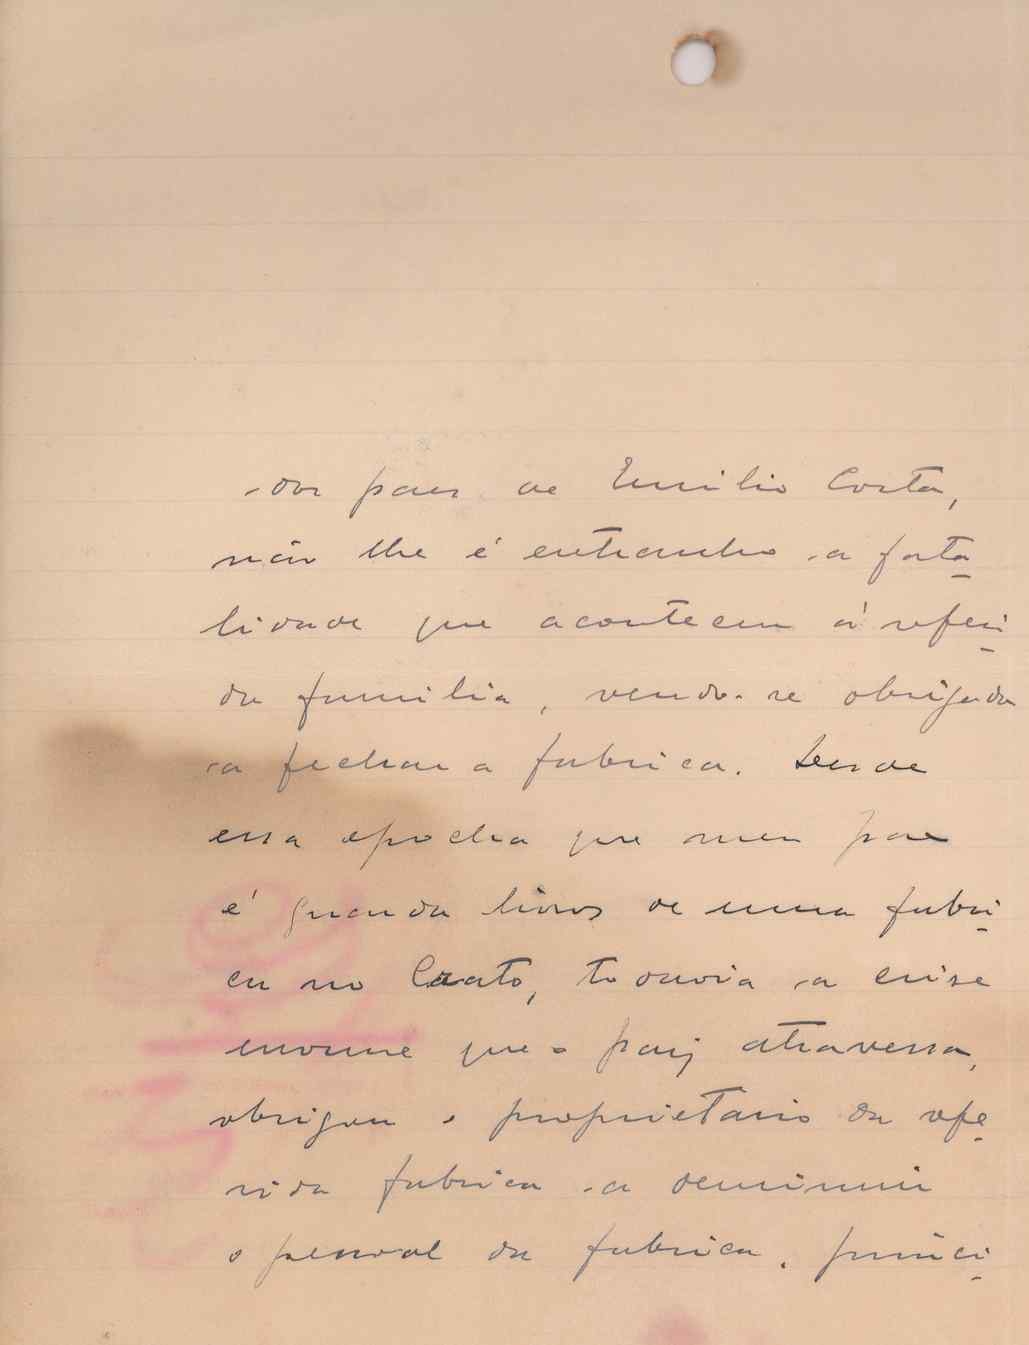 dos paes de Emilio Costa,
não lhe é extranho a fata-
lidade que aconteceu á referi-
da familia, vendo-se obrigada
a fechar a fabrica. Desde
essa epocha que meu pae
é guarda livros de uma fabri-
ca no Crato, todavia a crise
enorme que o paiz atravessa,
obrigou o proprietario da refe-
rida fabrica a deminuir
o pessoal da fabrica, princi-